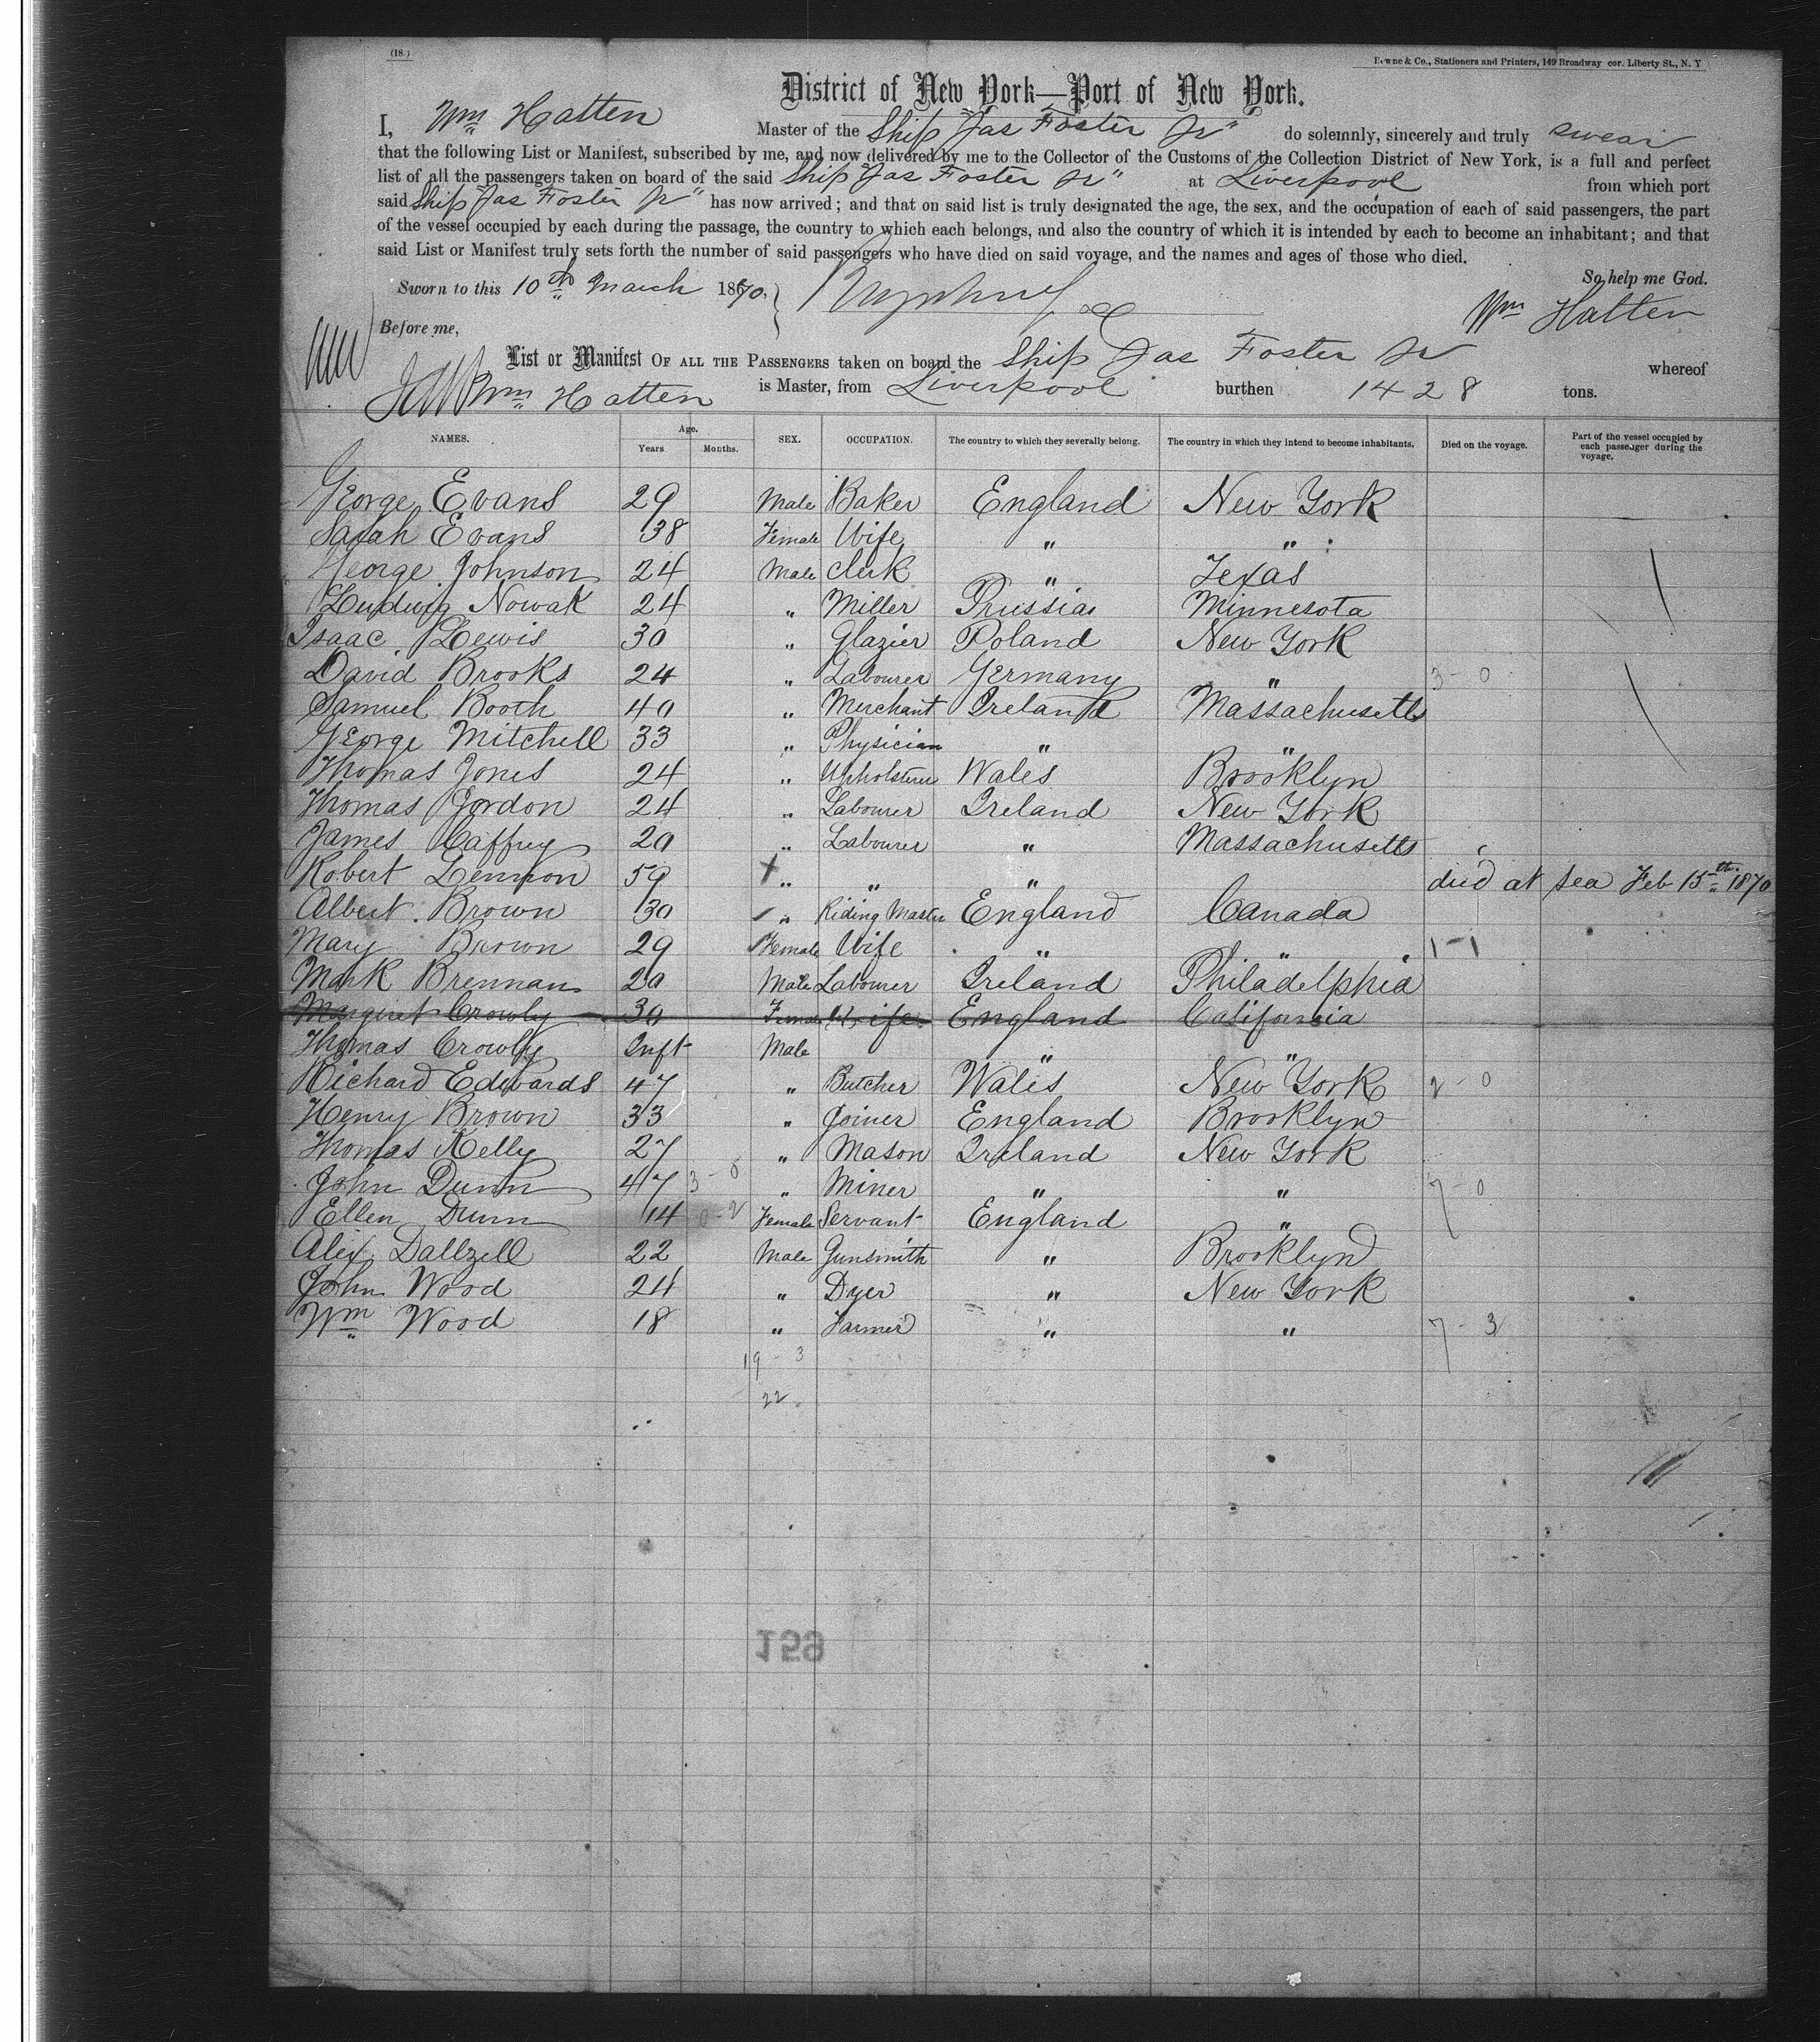 (18.)
Bowne & Co., Stationers and Printers, 149 Broadway cor. Liberty St., N. Y
District of New York—Port of New York.
I, Wm Hatten Master of the Ship "Jas Foster Jr" do solemnly, sincerely and truly swear
that the following List or Manifest, subscribed by me, and now delivered by me to the Collector of the Customs of the Collection District of New York, is a full and perfect
list of all the passengers taken on board of the said Ship "Jas Foster Jr" at Liverpool from which port
said Ship "Jas Foster Jr" has now arrived; and that on said list is truly designated the age, the sex, and the occupation of each of said passengers, the part
of the vessel occupied by each during the passage, the country to which each belongs, and also the country of which it is intended by each to become an inhabitant; and that
said List or Manifest truly sets forth the number of said passengers who have died on said voyage, and the names and ages of those who died.
So help me God.
Sworn to this 10th March 1870.
Wm Hatten
Before me,
List or Manifest OF ALL THE PASSENGERS taken on board the Ship Jas Foster Jr whereof
Wm Hatten is Master, from Liverpool burthen 1428 tons.
NAMES. Age. Years Months. SEX. OCCUPATION. The country to which they severally belong. The country in which they intend to become inhabitants. Died on the voyage. Part of the vessel occupied by each passenger during the voyage.
George Evans 29 Male Baker England New York
Sarah Evans 38 Female Wife " "
George Johnson 24 Male Clerk " Texas
Ludwig Nowak 24 " Miller Prussia Minnesota
Isaac Lewis 30 " Glazier Poland New York
David Brooks 24 " Labourer Germany " 3-0
Samuel Booth 40 " Merchant Ireland Massachusetts
George Mitchell 33 " Physician " "
Thomas Jones 24 " Upholsterer Wales Brooklyn
Thomas Gordon 24 " Labourer Ireland New York
James Caffrey 20 " Labourer " Massachusetts
Robert Lennon 59 " " " died at sea Feb 15th 1870
Albert Brown 30 " Riding Master England Canada
Mary Brown 29 Female Wife " " 1-1
Mark Brennan 20 Male Labourer Ireland Philadelphia
Margaret Crowly 30 Female Wife England California
Thomas Crowly Inft Male " "
Richard Edwards 47 " Butcher Wales New York 2-0
Henry Brown 33 " Joiner England Brooklyn
Thomas Kelly 27 " Mason Ireland New York
John Dunn 47 3-0 " Miner " " 7-0
Ellen Dunn 14 0-2 Female Servant England "
Alex Dallzell 22 Male Gunsmith " Brooklyn
John Wood 24 " Dyer " New York
Wm Wood 18 " Farmer " " 7-3
19-3
22
159